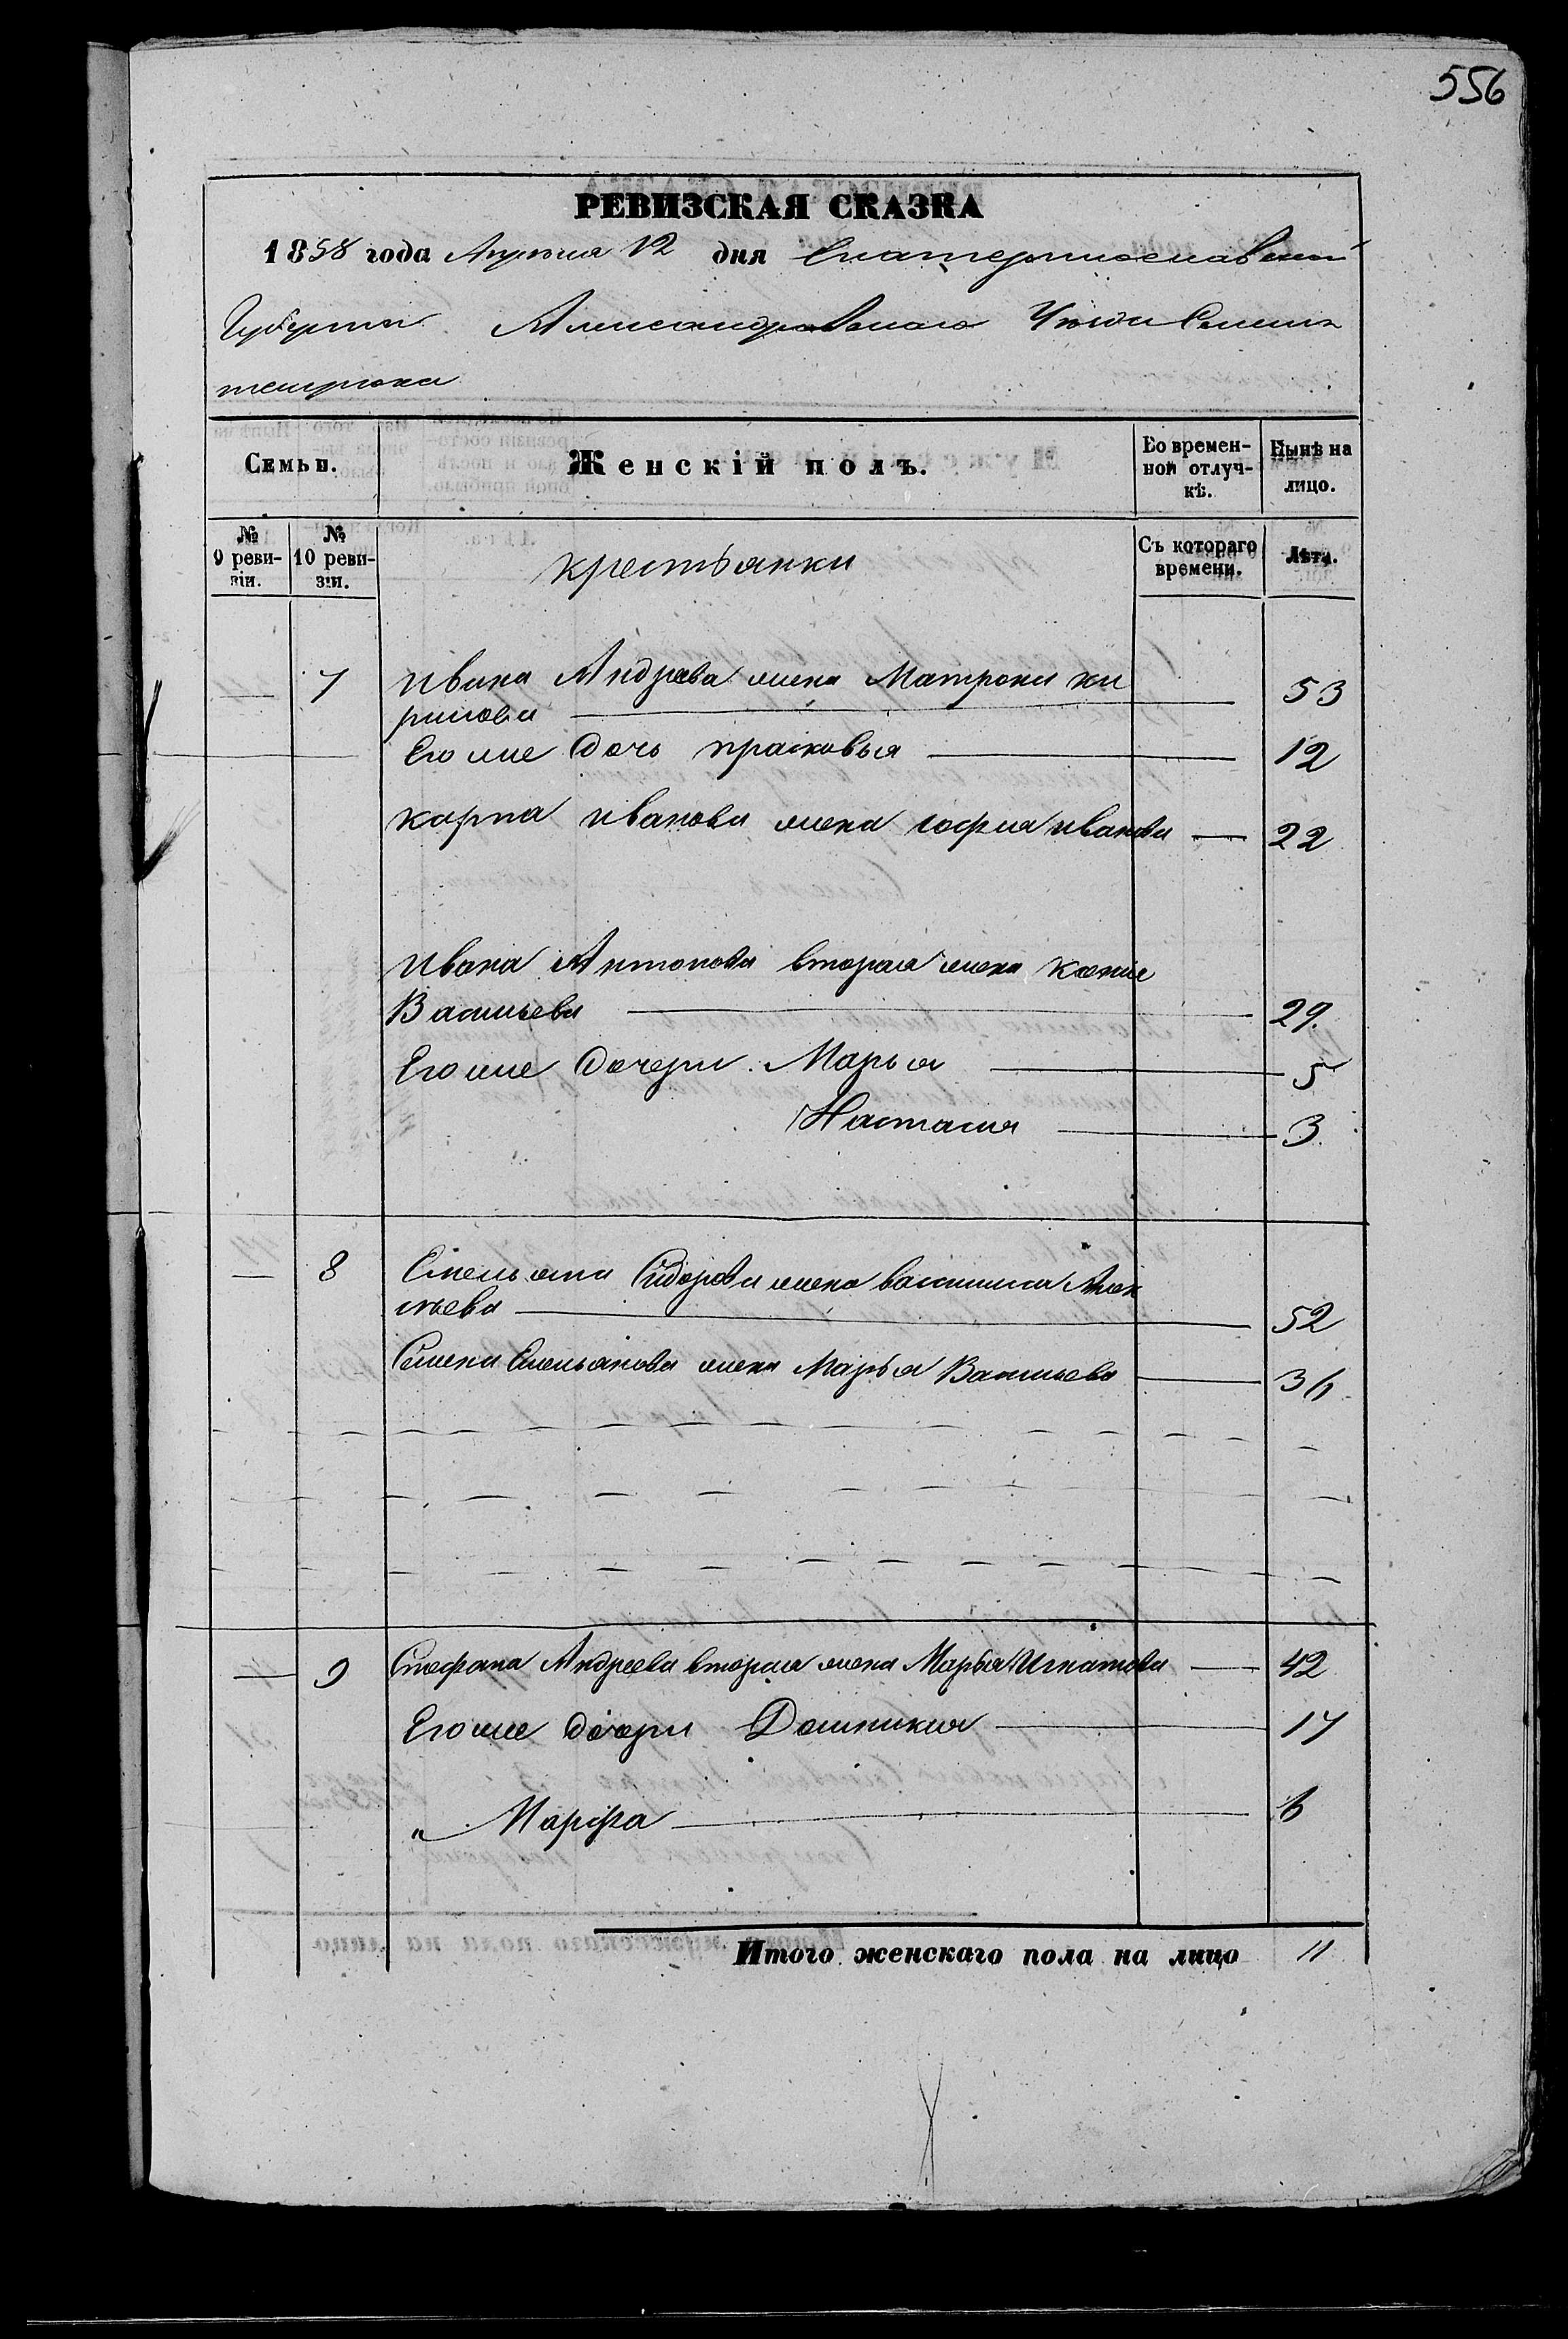 556
РЕВИЗСКАЯ СКАЗКА
1858 года Апреля 12 дня Екатеринославской
Губернии Александровскаго Уезда Селения
темрюка
Семьи. Женскій полъ. Во времен-ной отлуч-кѣ. Нынѣ на лицо.
№ 9 реви-зіи. № 10 реви-зіи. крестьянки Съ котораго времени. Лѣта.
— 7 Ивана Андреева жена Матрона ки
рилова — 53
Его же дочь прасковья — 12
карпа иванова жена софия иванова — 22
Ивана Антонова вторая жена ксения
Васильева — 29.
Его же дочери Марья — 5
Настасия — 3
— 8 Емельяна Сидорова жена василиса Алек
сѣева — 52
Семена Емельянова жена Марья Васильева — 36
— 9 Стефана Андреева вторая жена Марья Игнатова — 42
Его же дочери Домникия — 17
„ Марфа — 6
Итого женскаго пола на лицо 11